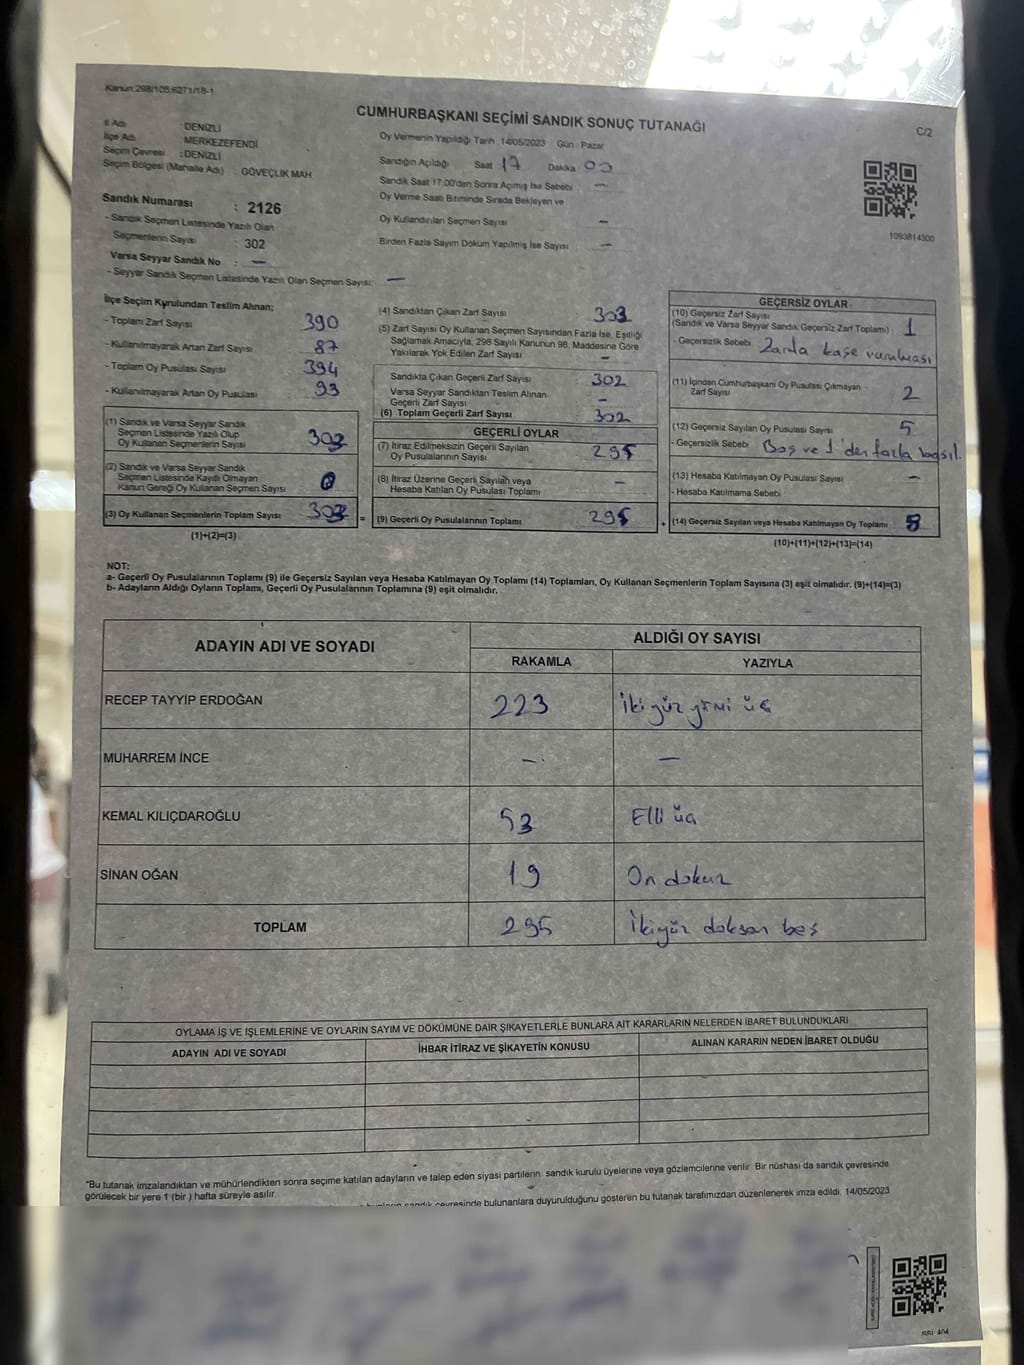 Kanun:298/105;6271/18-1
CUMHURBAŞKANI SEÇİMİ SANDIK SONUÇ TUTANAĞI
C/2
İl Adı DENİZLİ
İlçe Adı MERKEZEFENDİ
Seçim Çevresi : DENİZLİ
Seçim Bölgesi (Mahalle Adı) : GÖVEÇLİK MAH
Sandık Numarası : 2126
- Sandık Seçmen Listesinde Yazılı Olan
Seçmenlerin Sayısı : 302
Varsa Seyyar Sandık No : —
- Seyyar Sandık Seçmen Listesinde Yazılı Olan Seçmen Sayısı: —
Oy Vermenin Yapıldığı Tarih : 14/05/2023 Gün : Pazar
Sandığın Açıldığı Saat 17 Dakika 00
Sandık Saat 17:00'den Sonra Açılmış İse Sebebi —
Oy Verme Saati Bitiminde Sırada Bekleyen ve
Oy Kullandırılan Seçmen Sayısı —
Birden Fazla Sayım Döküm Yapılmış İse Sayısı —
1093814300
İlçe Seçim Kurulundan Teslim Alınan;
- Toplam Zarf Sayısı 390
- Kullanılmayarak Artan Zarf Sayısı 87
- Toplam Oy Pusulası Sayısı 394
- Kullanılmayarak Artan Oy Pusulası 93
(1) Sandık ve Varsa Seyyar Sandık
Seçmen Listesinde Yazılı Olup
Oy Kullanan Seçmenlerin Sayısı 303
(2) Sandık ve Varsa Seyyar Sandık
Seçmen Listesinde Kayıtlı Olmayan
Kanun Gereği Oy Kullanan Seçmen Sayısı 0
(3) Oy Kullanan Seçmenlerin Toplam Sayısı 303 =
(1)+(2)=(3)
(4) Sandıktan Çıkan Zarf Sayısı : 303
(5) Zarf Sayısı Oy Kullanan Seçmen Sayısından Fazla İse, Eşitliği
Sağlamak Amacıyla, 298 Sayılı Kanunun 98. Maddesine Göre
Yakılarak Yok Edilen Zarf Sayısı —
Sandıkta Çıkan Geçerli Zarf Sayısı 302
Varsa Seyyar Sandıktan Teslim Alınan
Geçerli Zarf Sayısı —
(6) Toplam Geçerli Zarf Sayısı 302
GEÇERLİ OYLAR
(7) İtiraz Edilmeksizin Geçerli Sayılan
Oy Pusulalarının Sayısı 295
(8) İtiraz Üzerine Geçerli Sayılan veya
Hesaba Katılan Oy Pusulası Toplamı —
(9) Geçerli Oy Pusulalarının Toplamı 295 +
GEÇERSİZ OYLAR
(10) Geçersiz Zarf Sayısı
(Sandık ve Varsa Seyyar Sandık Geçersiz Zarf Toplamı) 1
- Geçersizlik Sebebi Zarfa kaşe vurulması
(11) İçinden Cumhurbaşkanı Oy Pusulası Çıkmayan
Zarf Sayısı 2
(12) Geçersiz Sayılan Oy Pusulası Sayısı 5
- Geçersizlik Sebebi Boş ve 1'den fazla basıl.
(13) Hesaba Katılmayan Oy Pusulası Sayısı —
- Hesaba Katılmama Sebebi
(14) Geçersiz Sayılan veya Hesaba Katılmayan Oy Toplamı 8
(10)+(11)+(12)+(13)=(14)
NOT:
a- Geçerli Oy Pusulalarının Toplamı (9) ile Geçersiz Sayılan veya Hesaba Katılmayan Oy Toplamı (14) Toplamları, Oy Kullanan Seçmenlerin Toplam Sayısına (3) eşit olmalıdır. (9)+(14)=(3)
b- Adayların Aldığı Oyların Toplamı, Geçerli Oy Pusulalarının Toplamına (9) eşit olmalıdır.
ADAYIN ADI VE SOYADI ALDIĞI OY SAYISI
RAKAMLA YAZIYLA
RECEP TAYYİP ERDOĞAN 223 İkiyüz yirmi üç
MUHARREM İNCE — —
KEMAL KILIÇDAROĞLU 53 Elli üç
SİNAN OĞAN 19 On dokuz
TOPLAM 295 İkiyüz doksan beş
OYLAMA İŞ VE İŞLEMLERİNE VE OYLARIN SAYIM VE DÖKÜMÜNE DAİR ŞİKAYETLERLE BUNLARA AİT KARARLARIN NELERDEN İBARET BULUNDUKLARI
ADAYIN ADI VE SOYADI İHBAR İTİRAZ VE ŞİKAYETİN KONUSU ALINAN KARARIN NEDEN İBARET OLDUĞU
*Bu tutanak imzalandıktan ve mühürlendikten sonra seçime katılan adayların ve talep eden siyasi partilerin sandık kurulu üyelerine veya gözlemcilerine verilir. Bir nüshası da sandık çevresinde
görülecek bir yere 1 (bir ) hafta süreyle asılır.
sandık çevresinde bulunanlara duyurulduğunu gösteren bu tutanak tarafımızdan düzenlenerek imza edildi. 14/05/2023